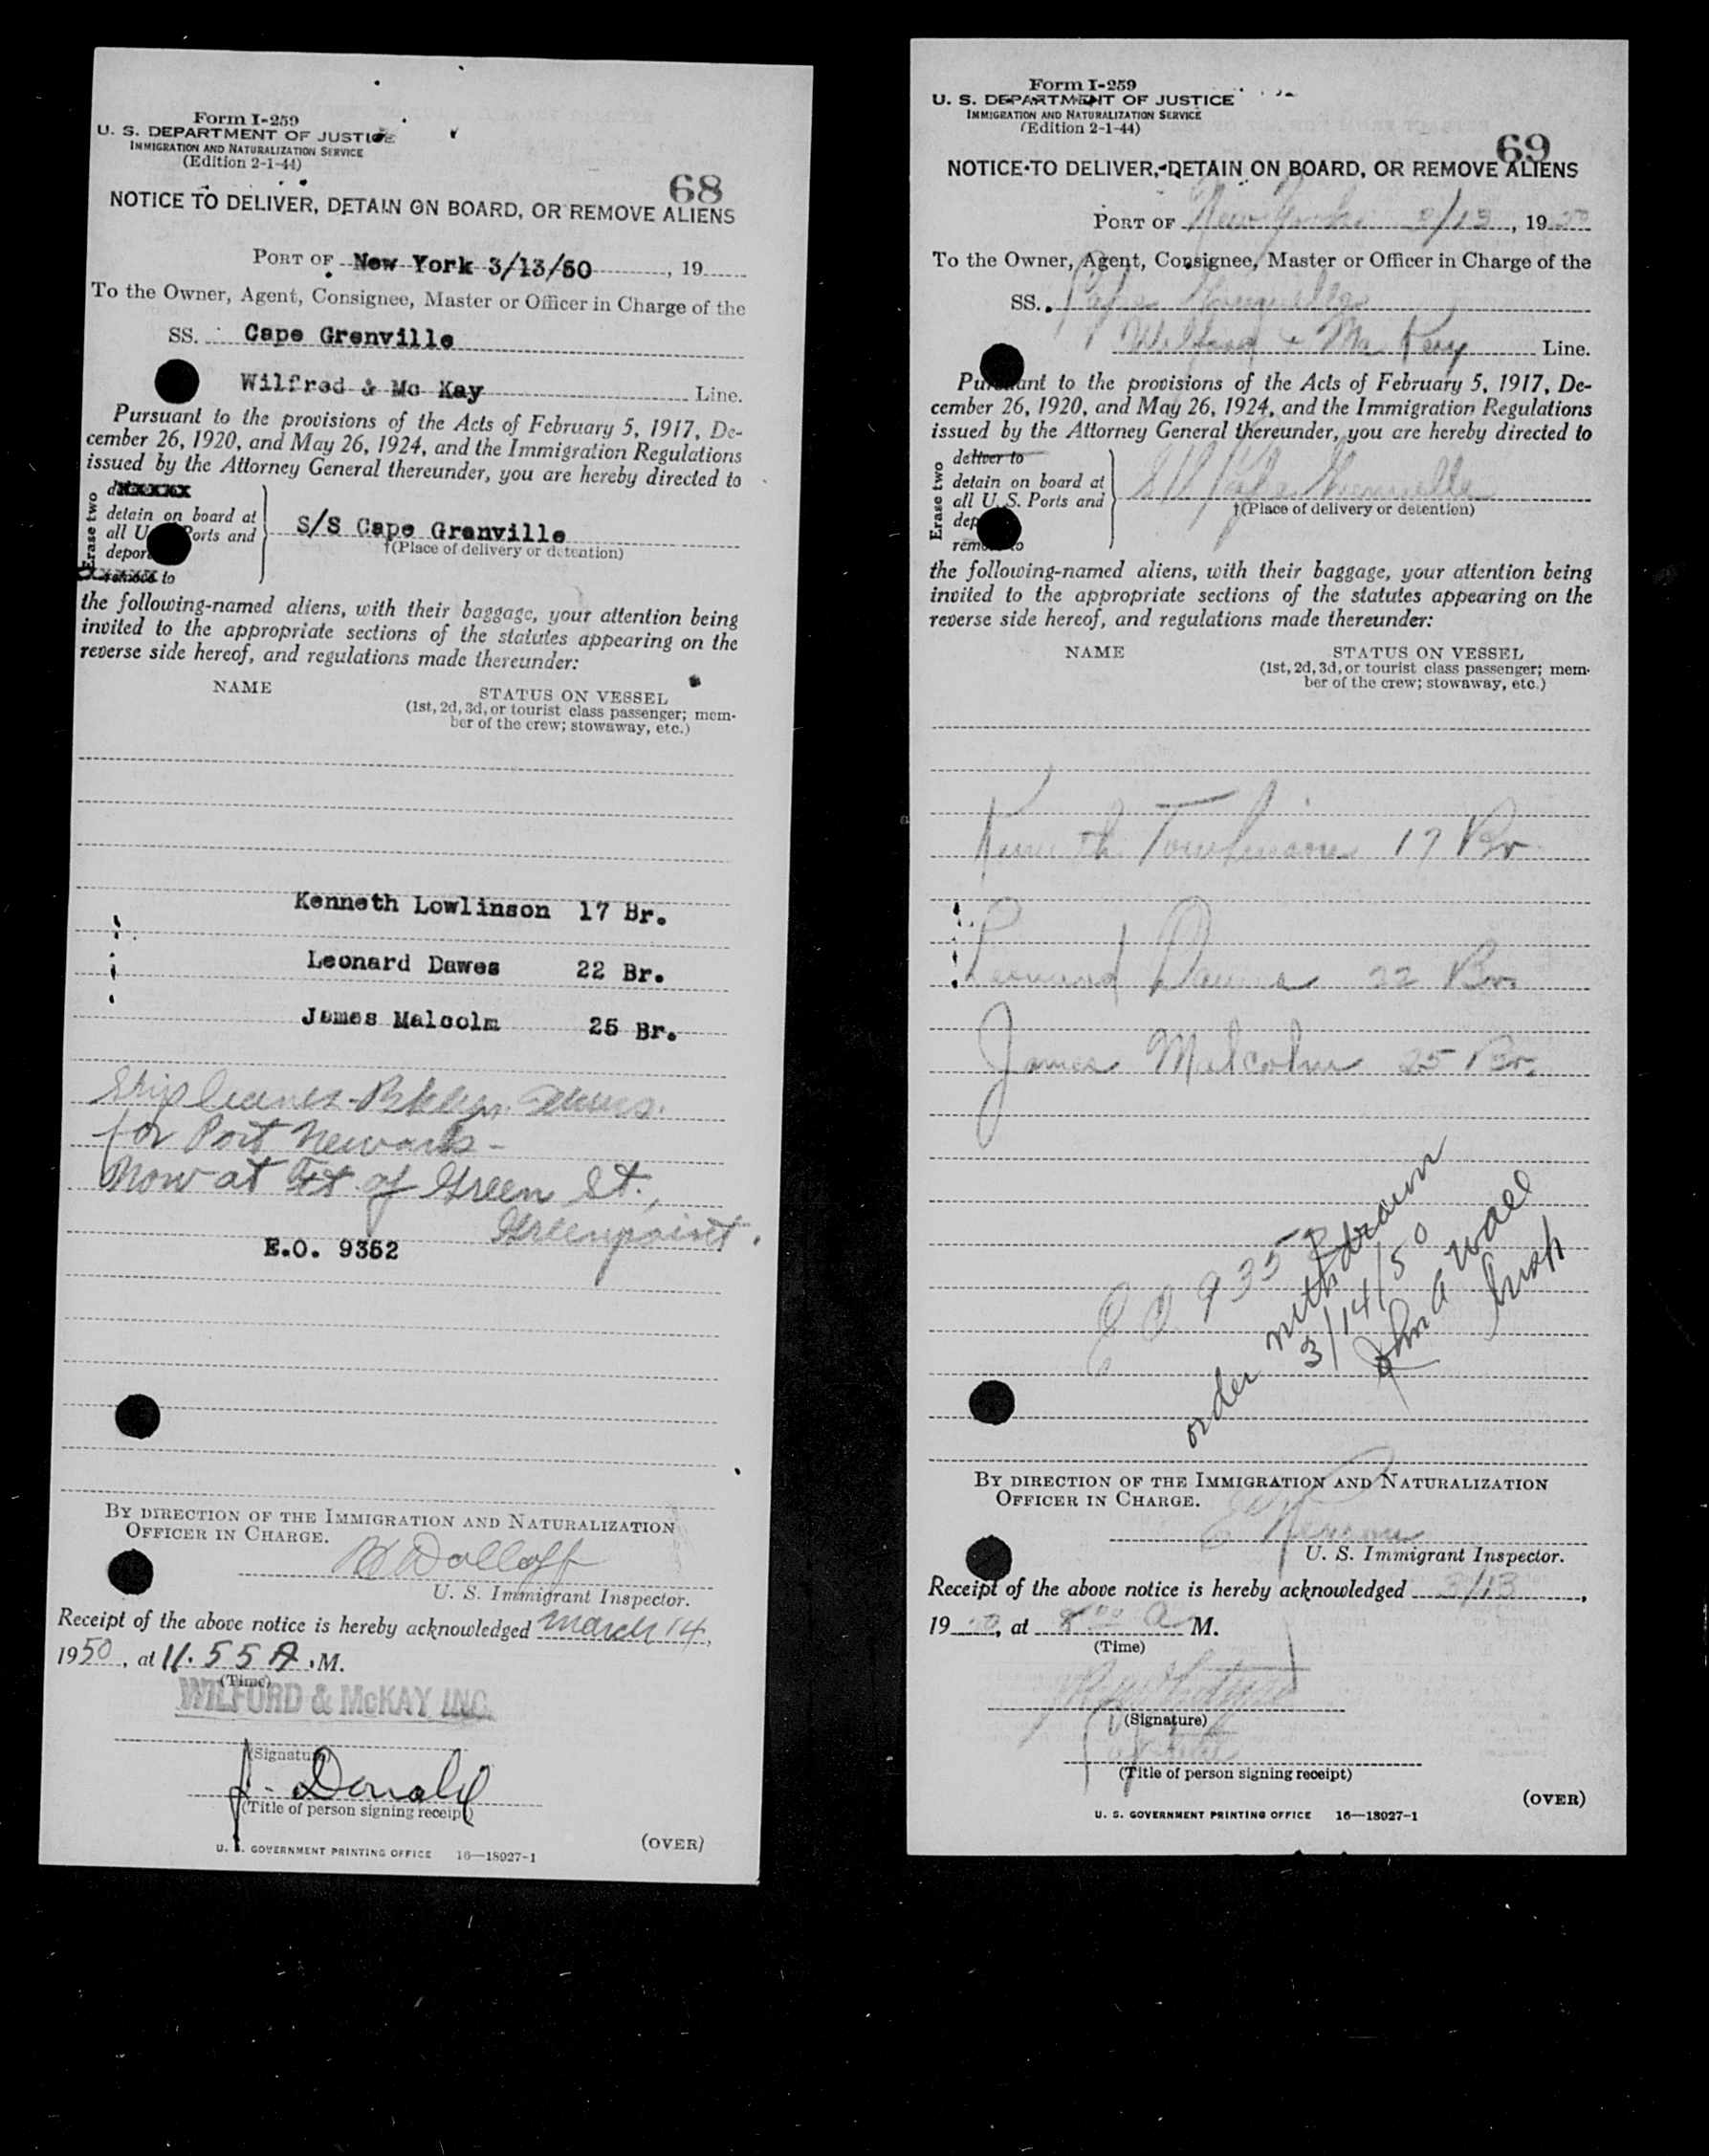 Form I-259
U. S. DEPARTMENT OF JUSTICE
IMMIGRATION AND NATURALIZATION SERVICE
(Edition 2-1-44)
68
NOTICE TO DELIVER, DETAIN ON BOARD, OR REMOVE ALIENS
PORT OF New York 3/13/50, 19
To the Owner, Agent, Consignee, Master or Officer in Charge of the
SS. Cape Grenville
Wilfred & Mc Kay Line.
Pursuant to the provisions of the Acts of February 5, 1917, De-
cember 26, 1920, and May 26, 1924, and the Immigration Regulations
issued by the Attorney General thereunder, you are hereby directed to
Erase two
detain on board at
all U Ports and
depor
remove to
S/S Cape Grenville
†(Place of delivery or detention)
the following-named aliens, with their baggage, your attention being
invited to the appropriate sections of the statutes appearing on the
reverse side hereof, and regulations made thereunder:
NAME
STATUS ON VESSEL
(1st, 2d, 3d, or tourist class passenger; mem-
ber of the crew; stowaway, etc.)
Kenneth Lowlinson 17 Br.
Leonard Dawes 22 Br.
James Malcolm 25 Br.
Ship leaves Bklyn
for Port Newark -
Now at Ft. of Green St.,
Greenpoint.
E.O. 9352
BY DIRECTION OF THE IMMIGRATION AND NATURALIZATION
OFFICER IN CHARGE.
U. S. Immigrant Inspector.
Receipt of the above notice is hereby acknowledged March 14,
1950, at 11.55 A.M.
(Time)
WILFORD & McKAY INC.
(Signature)
J. Donald
(Title of person signing receipt)
U. S. GOVERNMENT PRINTING OFFICE 16—18927-1
(OVER)
Form I-259
U. S. DEPARTMENT OF JUSTICE
IMMIGRATION AND NATURALIZATION SERVICE
(Edition 2-1-44)
69
NOTICE TO DELIVER, DETAIN ON BOARD, OR REMOVE ALIENS
PORT OF New York 3/13, 1950
To the Owner, Agent, Consignee, Master or Officer in Charge of the
SS. Cape Grenville
Wilfred & Mc Kay Line.
Pursuant to the provisions of the Acts of February 5, 1917, De-
cember 26, 1920, and May 26, 1924, and the Immigration Regulations
issued by the Attorney General thereunder, you are hereby directed to
Erase two
deliver to
detain on board at
all U.S. Ports and
dep
remove to
SS Cape Grenville
†(Place of delivery or detention)
the following-named aliens, with their baggage, your attention being
invited to the appropriate sections of the statutes appearing on the
reverse side hereof, and regulations made thereunder:
NAME
STATUS ON VESSEL
(1st, 2d, 3d, or tourist class passenger; mem-
ber of the crew; stowaway, etc.)
Kenneth Towlinson 17 Br
Leonard Dawes 22 Br.
James Malcolm 25 Br.
E O 9352
order withdrawn
3/14/50
John A Wall
Insp
BY DIRECTION OF THE IMMIGRATION AND NATURALIZATION
OFFICER IN CHARGE.
U. S. Immigrant Inspector.
Receipt of the above notice is hereby acknowledged 3/13,
1950, at 8 00 A M.
(Time)
(Signature)
(Title of person signing receipt)
(OVER)
U. S. GOVERNMENT PRINTING OFFICE 16—18927-1